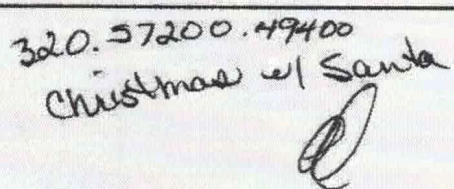 320.57200.49400
Christmas w/ Santa